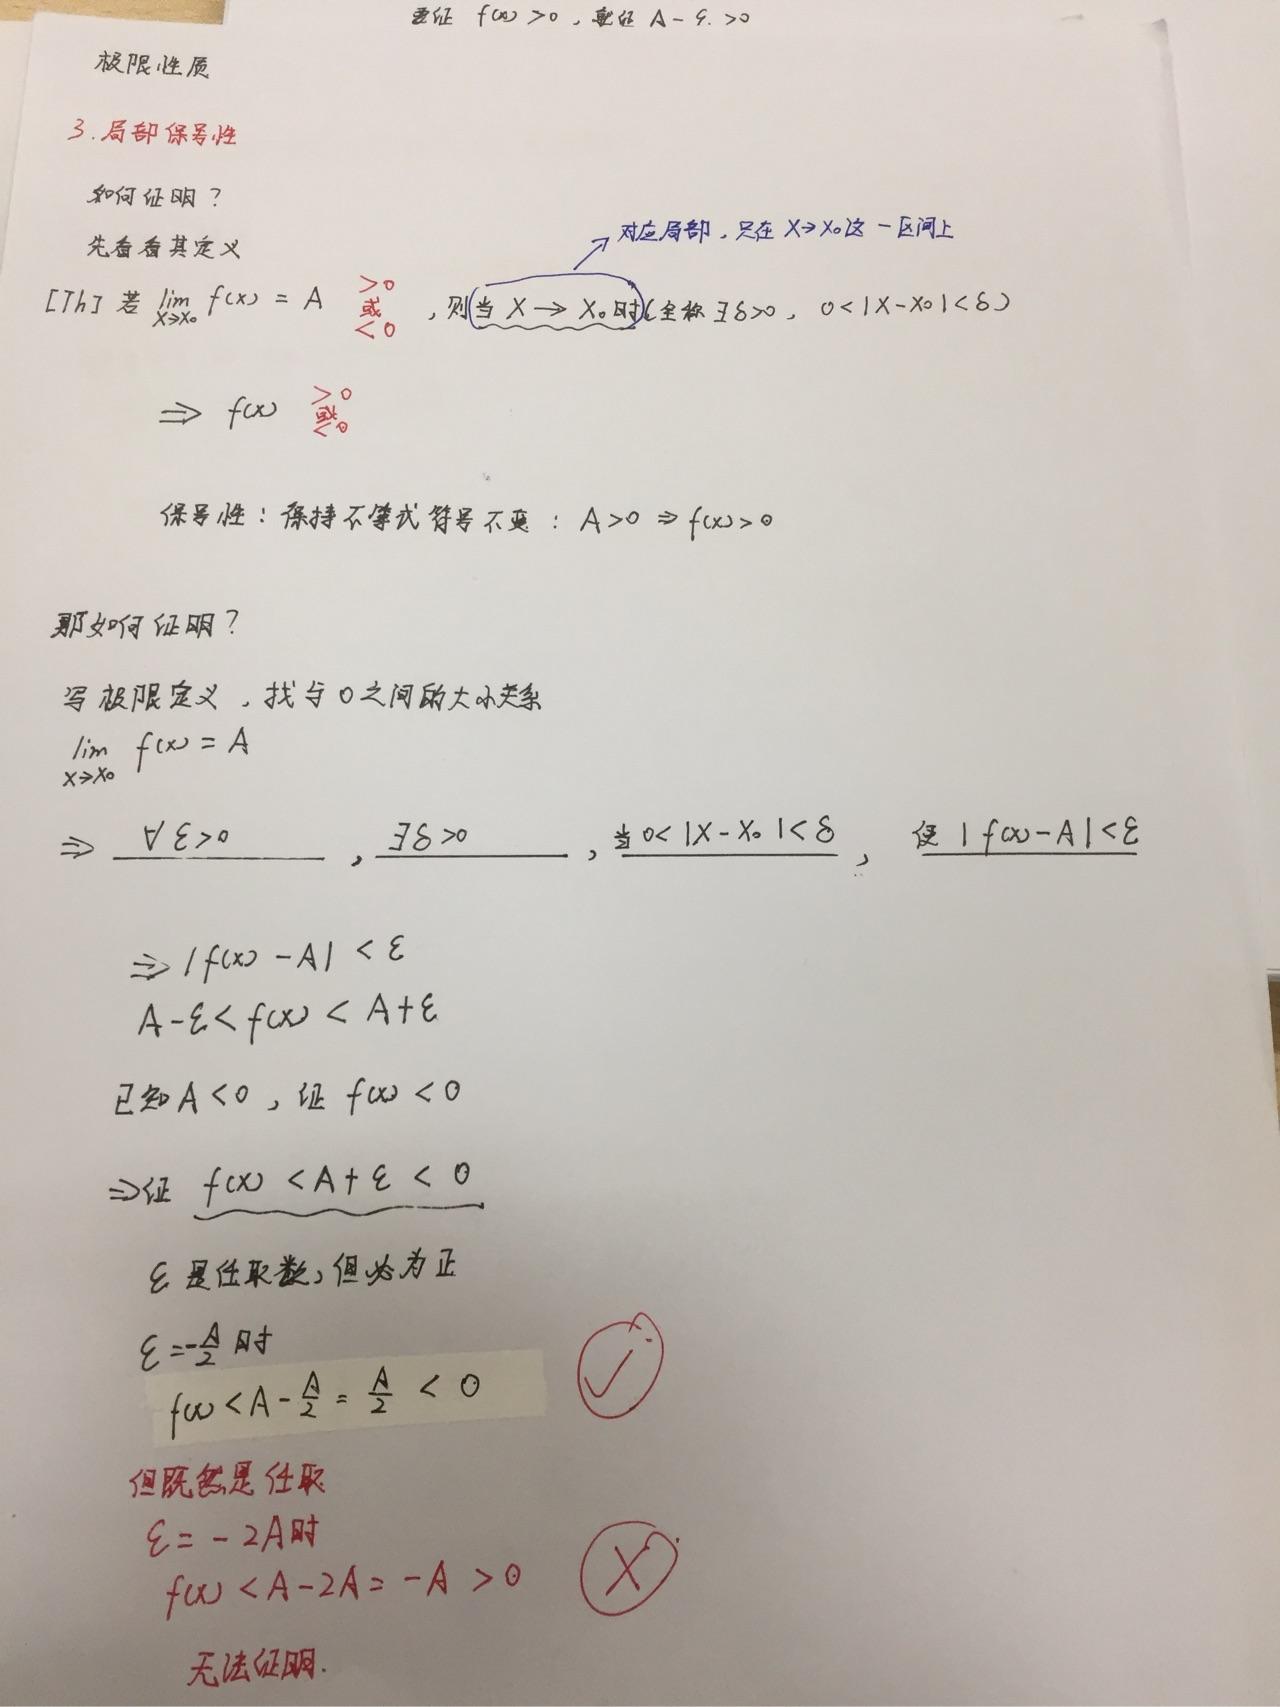 要证 f(x) >0，就证 A-ε.>0
极限性质
3.局部保号性
如何证明？
先看看其定义
对应局部，只在 X→X₀这一区间上
[Th] 若 lim X→X₀ f(x) = A >0 或 <0，则当 X→X₀时（全称∃δ>0，0<|X-X₀|<δ）
⇒ f(x) >0 或 <0
保号性：保持不等式符号不变：A>0 ⇒ f(x)>0
那如何证明？
写极限定义，找与0之间的大小关系
lim X→X₀ f(x) = A
⇒ ∀ε>0，∃δ>0，当0<|X-X₀|<δ，使|f(x)-A|<ε
⇒ |f(x)-A| < ε
A-ε< f(x) < A+ε
已知A<0，证 f(x) <0
⇒证 f(x) <A+ε < 0
ε是任取数，但必为正
ε=-A/2时
f(x) <A-A/2 = A/2 < 0 ✓
但既然是任取
ε= -2A时
f(x) <A-2A= -A >0 X
无法证明.